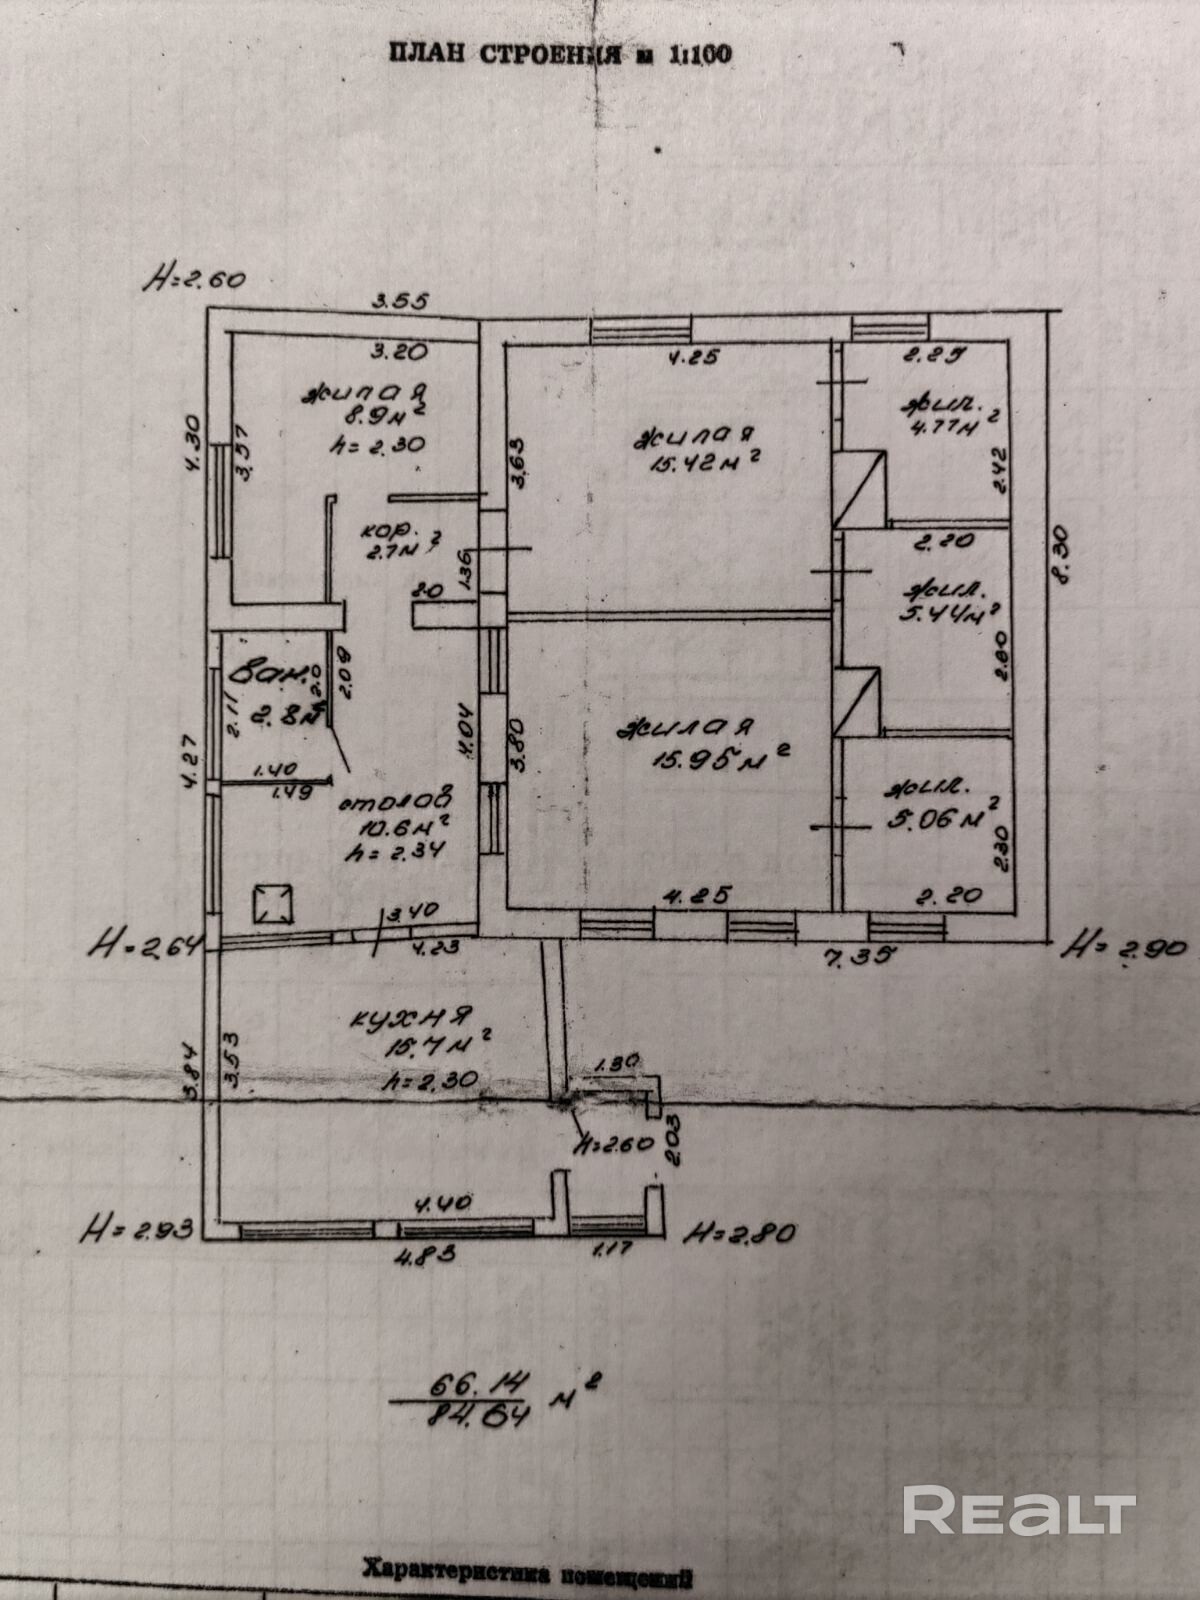 ПЛАН СТРОЕНИЯ м 1:100
H=2.60
3.55
3.20
4.25
2.29
жилая
8.9м²
h=2.30
4.30
3.57
3.63
жилая
15.42м²
жил.
4.77м²
2.42
кор.
2.7м²
1.36
2.20
8.30
80
жил.
5.44м²
2.80
Ван.
2.8м²
2.0
2.09
2.11
4.27
4.04
3.80
жилая
15.95м²
1.40
1.49
столов
10.6м²
h=2.34
жил.
5.06м²
2.30
3.40
4.25
2.20
H=2.64
4.23
7.35
H=2.90
кухня
15.7м²
h=2.30
3.84
3.53
1.30
H=2.60
2.03
4.40
H=2.93
4.83
1.17
H=2.80
66.14
84.64 м²
REALT
Характеристика помещений